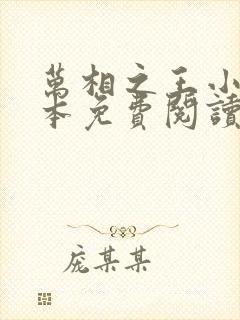 萬相之王小
本免費閱讀
庞某某